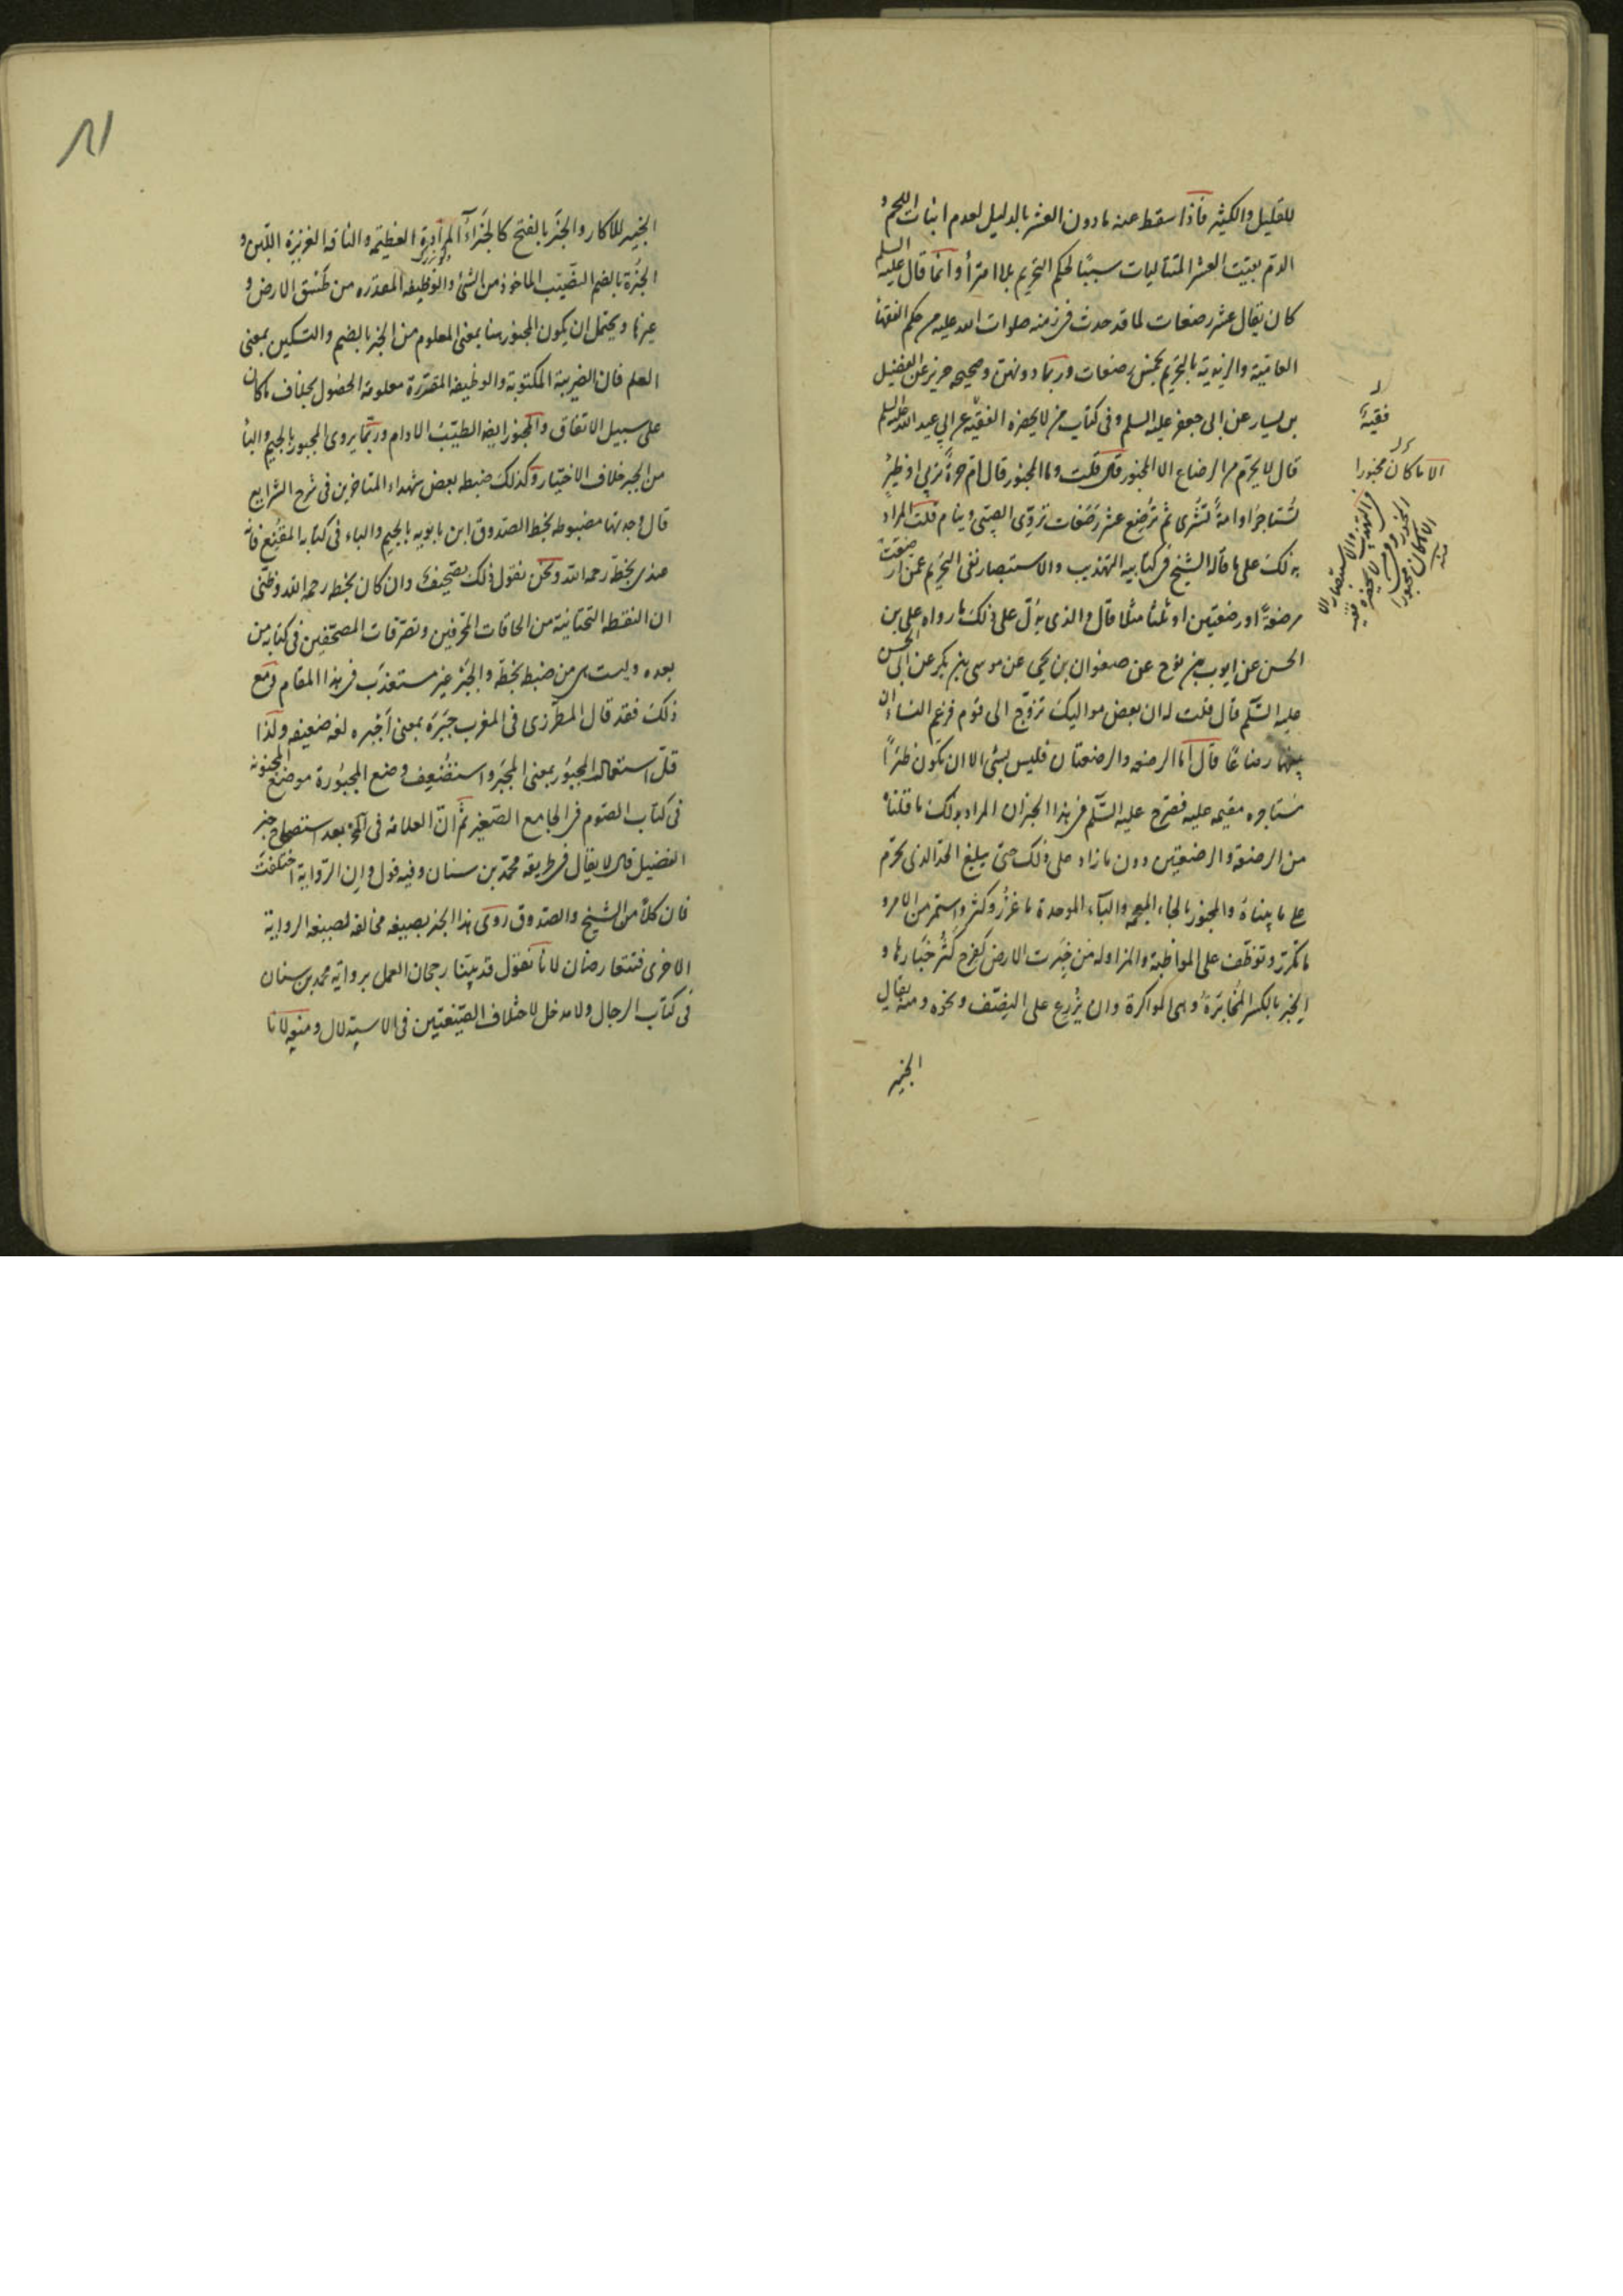 للقليل والكثير فاذا سقط عنه ما دون العشر بالدليل لعدم انبات اللحم و
الدم بقيت العشر المتتاليات سببًا لحكم التحريم بلا امترأ وانما قال عليه السلم
كان يقال عشر رضعات لما قد حدث فى زمنه صلوات الله عليه من حكم الفقهأ
العامية والزيدية بالتحريم بخمس رضعات وربما دونهن وصحيحه حريز عن الفضيل
بن يسار عن ابى جعفر عليه السلم وفى كتاب من لا يحضره الفقيه عن ابي عبد الله عليه السلم
قال لا يحرم من الرضاع الا المخبور قال قلت وما المخبور قال ام حرة تربي او ظئر
تستاجر او امة تشترى ثم ترضع عشر رضعات تروى الصبى وينام قلت المراد
بذلك على ما قاله الشيخ فى كتابيه التهذيب والاستبصار نفى التحريم عمن ارضعت
رضعة او رضعتين او ثلثا مثلا قال والذى يدل على ذلك ما رواه على بن
الحسن عن ايوب بن نوح عن صفوان بن يحيى عن موسى بن بكر عن ابى الحسن
عليه السلم قال قلت له ان بعض مواليك تزوج الى قوم فزعم النساء ان
بينهما رضاعا قال اما الرضعه والرضعتان فليس بشئ الا ان تكون ظئرًا
مستاجره مقيمه عليه فصرح عليه السلم فى هذا الخبر ان المراد بذلك ما قلناه
من الرضعة والرضعتين دون ما زاد على ذلك حتى يبلغ الحد الذى يحرم
على ما بيناه والمخبور بالخاء المعجمه والبآء الموحدة ما غزر وكثر واستمر من الامر و
ما تكرر وتوظف على المواظبة والمزاوله من خبرت الارض كفرح كثر خبارها و
الخبر بالكسر المخابرة وهى المواكرة وان يزرع على النصف ونحوه ومنه يقال
الخبير
فقية
الا ما كان مخبورا
التهذيب والاستبصار الا
المخبور وفى من لا يحضره الفقيه
الا ما كان مجبورا
منه
الخبير للاكار والخبر بالفتح كالخبراء المزادة العظيمه والناقه الغزيرة اللبن و
الخبرة بالضم النصيب الماخوذ من الشئ والوظيفه المقدره من طسق الارض و
غيرها ويحتمل ان يكون المخبور هنا بمعنى المعلوم من الخبر بالضم والتسكين بمعنى
العلم فان الضريبة المكتوبة والوظيفه المقررة معلومة الحصول بخلاف ما كان
على سبيل الاتفاق والمخبور ايضا الطيب الادام وربما يروى المجبور بالجيم والبأ
من الجبر خلاف الاختيار وكذلك ضبطه بعض شهداء المتاخرين فى شرح الشرايع
قال وجدتها مضبوطه بخط الصدوق ابن بابويه بالجيم والباء فى كتابه المقنع فانه
عندى بخطه رحمه الله ونحن نقول ذلك تصحيف وان كان بخطه رحمه الله وظنى
ان النقطه التحتانية من الحاقات المحرفين وتصرفات المصحفين فى كتابه من
بعده وليست هى من ضبط بخطه والجبر غير مستعذب فى هذا المقام ومع
ذلك فقد قال المطرزى فى المغرب جبره بمعنى اجبره لغه ضعيفه ولذا
قل استعمال المجبور بمعنى المجبر واستضعف وضع المجبورة موضع المجنونه
فى كتاب الصوم فى الجامع الصغير ثم ان العلامه فى المخ بعد استصحاح خبر
الفضيل قال لا يقال فى طريقه محمد بن سنان وفيه قول وان الرواية اختلفت
فان كلا من الشيخ والصدوق روى هذا الخبر بصيغه مخالفه لصيغه الرواية
الاخرى فتتعارضان لانا نقول قد بينا رجحان العمل برواية محمد بن سنان
فى كتاب الرجال ولا مدخل لاختلاف الصيغتين فى الاستدلال ومنعه لانا